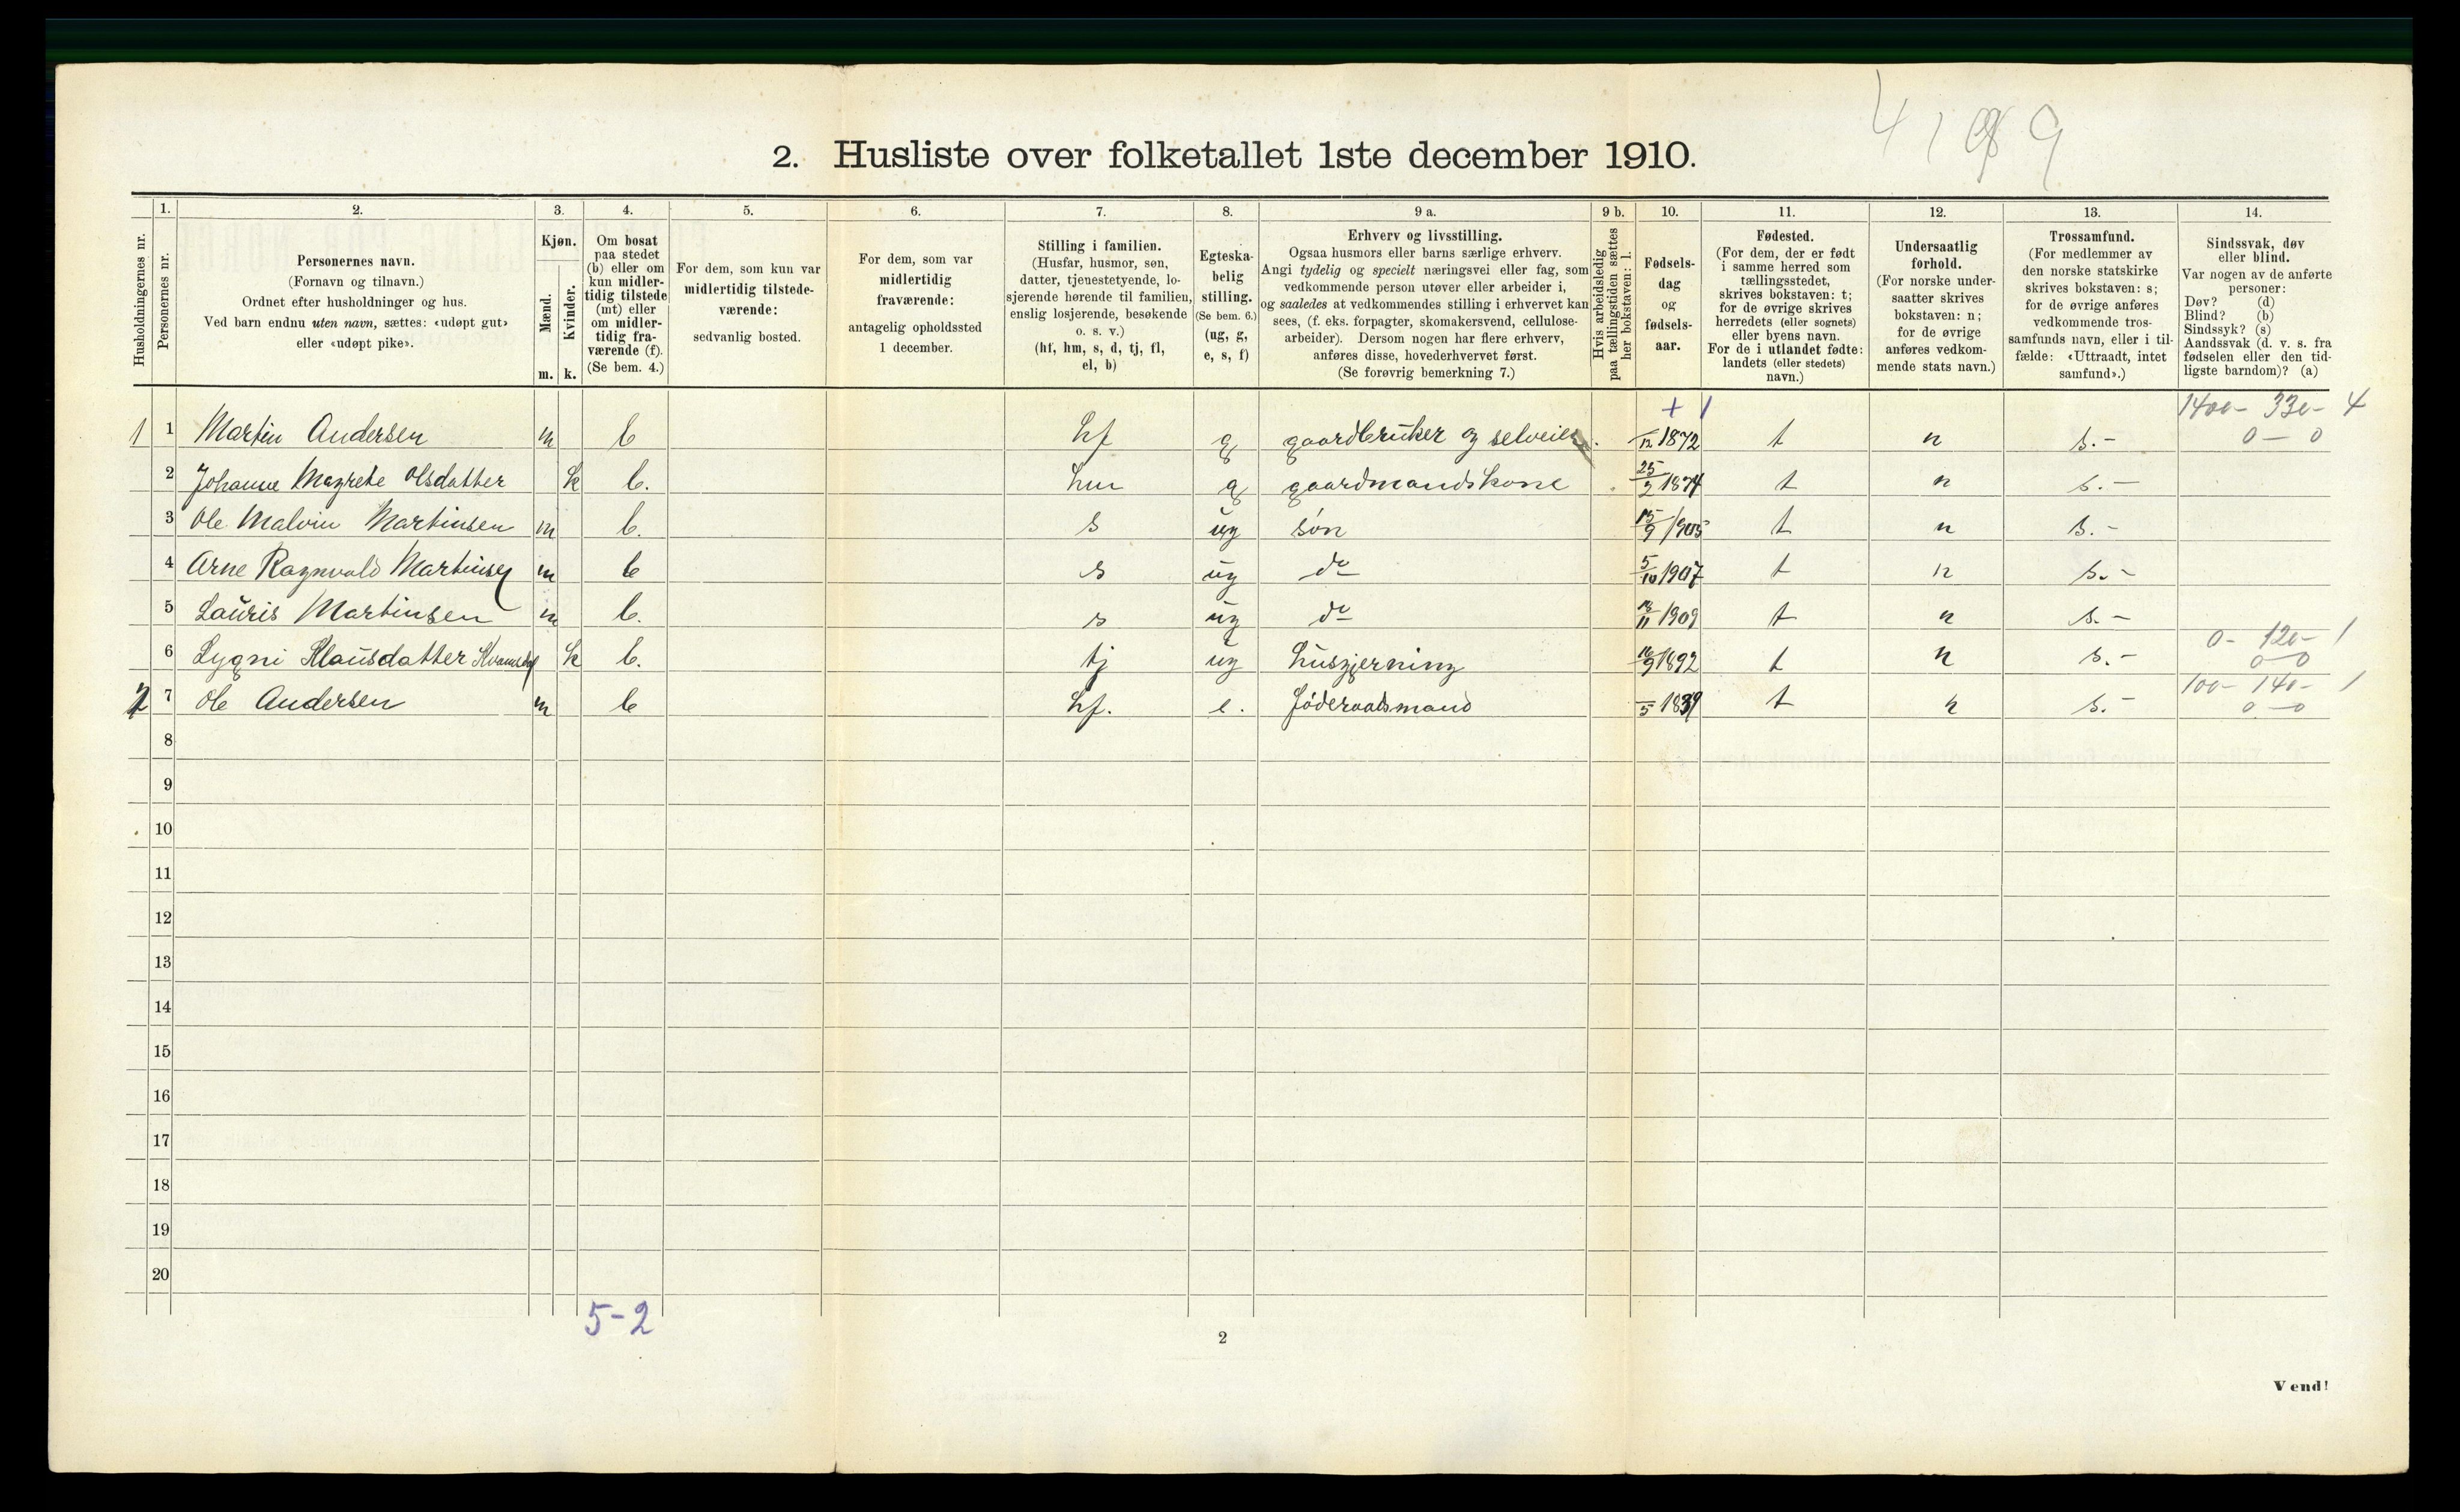 4 1 9
2. Husliste over folketallet 1ste december 1910.
Husholdningernes nr.
1.
Personernes nr.
2.
Personernes navn.
(Fornavn og tilnavn.)
Ordnet efter husholdninger og hus.
Ved barn endnu uten navn, sættes: «udøpt gut»
eller «udøpt pike».
3.
Kjøn.
Mænd.
Kvinder.
m. k.
4.
Om bosat
paa stedet
(b) eller om
kun midler-
tidig tilstede
(mt) eller
om midler-
tidig fra-
værende (f).
(Se bem. 4.)
5.
For dem, som kun var
midlertidig tilstede-
værende:
sedvanlig bosted.
6.
For dem, som var
midlertidig
fraværende:
antagelig opholdssted
1 december.
7.
Stilling i familien.
(Husfar, husmor, søn,
datter, tjenestetyende, lo-
sjerende hørende til familien,
enslig losjerende, besøkende
o. s. v.)
(hf, hm, s, d, tj, fl,
el, b)
8.
Egteska-
belig
stilling.
(Se bem. 6.)
(ug, g,
e, s, f)
9 a.
Erhverv og livsstilling.
Ogsaa husmors eller barns særlige erhverv.
Angi tydelig og specielt næringsvei eller fag, som
vedkommende person utøver eller arbeider i,
og saaledes at vedkommendes stilling i erhvervet kan
sees, (f. eks. forpagter, skomakersvend, cellulose-
arbeider). Dersom nogen har flere erhverv,
anføres disse, hovederhvervet først.
(Se forøvrig bemerkning 7.)
9 b.
Hvis arbeidsledig
paa tællingstiden sættes
her bokstaven: l.
10.
Fødsels-
dag
og
fødsels-
aar.
11.
Fødested.
(For dem, der er født
i samme herred som
tællingsstedet,
skrives bokstaven: t;
for de øvrige skrives
herredets (eller sognets)
eller byens navn.
For de i utlandet fødte:
landets (eller stedets)
navn.)
12.
Undersaatlig
forhold.
(For norske under-
saatter skrives
bokstaven: n;
for de øvrige
anføres vedkom-
mende stats navn.)
13.
Trossamfund.
(For medlemmer av
den norske statskirke
skrives bokstaven: s;
for de øvrige anføres
vedkommende tros-
samfunds navn, eller i til-
fælde: «Uttraadt, intet
samfund».)
14.
Sindssvak, døv
eller blind.
Var nogen av de anførte
personer:
Døv? (d)
Blind? (b)
Sindssyk? (s)
Aandssvak (d. v. s. fra
fødselen eller den tid-
ligste barndom)? (a)
+ 1 1400- 330- 4
1 1 Martin Andersen m b hf g gaardbruker og selveier. /12 1872 t n s.- 0-0
2 Johanne Magrete Olsdatter k b. hm g gaardmandskone 25/2 1874 t n s.-
3 Ole Malvin Martinsen m b. s ug søn 15/9 1905 t n s.-
4 Arne Ragnvald Martinsen m b s ug do 5/10 1907 t n s.-
5 Lauris Martinsen m b. s ug do /11 1909 t n s.-
0- 120- 1
6 Lygni Klausdatter k b. tj ug husgjerning /9 1892 t n s.- 0-0
100- 140- 1
2 7 Ole Andersen m b hf. e. føderaadsmand /5 1839 t n s.- 0-0
8
9
10
11
12
13
14
15
16
17
18
19
20
5-2
2
Vend!